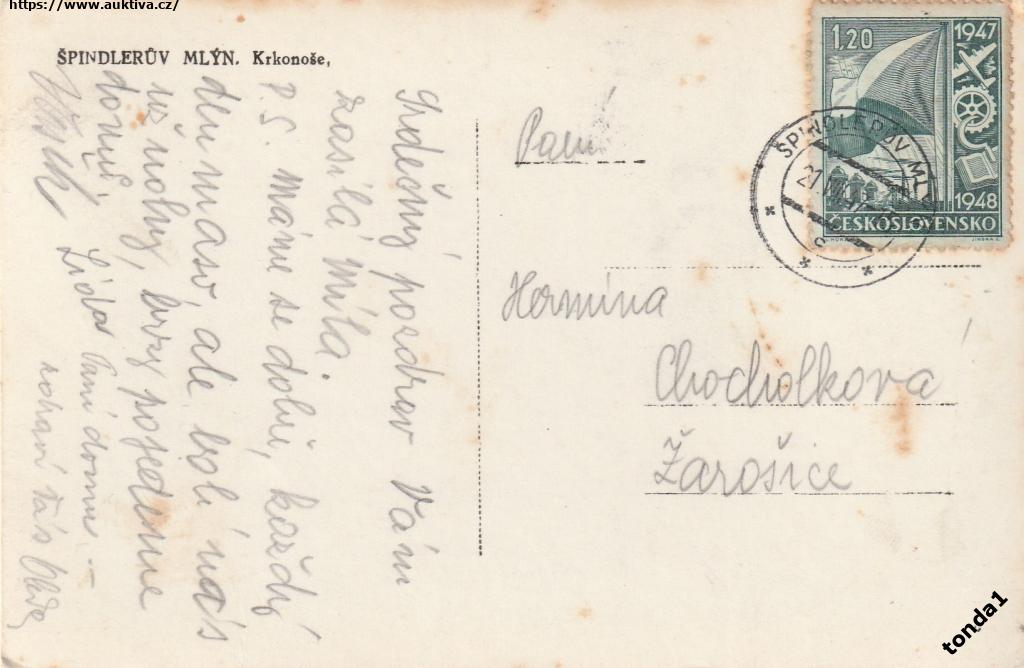 https://www.auktiva.cz/
ŠPINDLERŮV MLÝN. Krkonoše,
Srdečný pozdrav Vám
zasílá Míla.
P.S. Máme se dobře, každý
den maso, ale bolí nás
už nohy, brzy pojedeme
domů.
Lída
Paní domu –
zdraví Vás
Paní
Hermína
Chocholkova
Žarošice
1,20
1947
1948
ČESKOSLOVENSKO
ŠPINDLERŮV MLÝN
tonda1